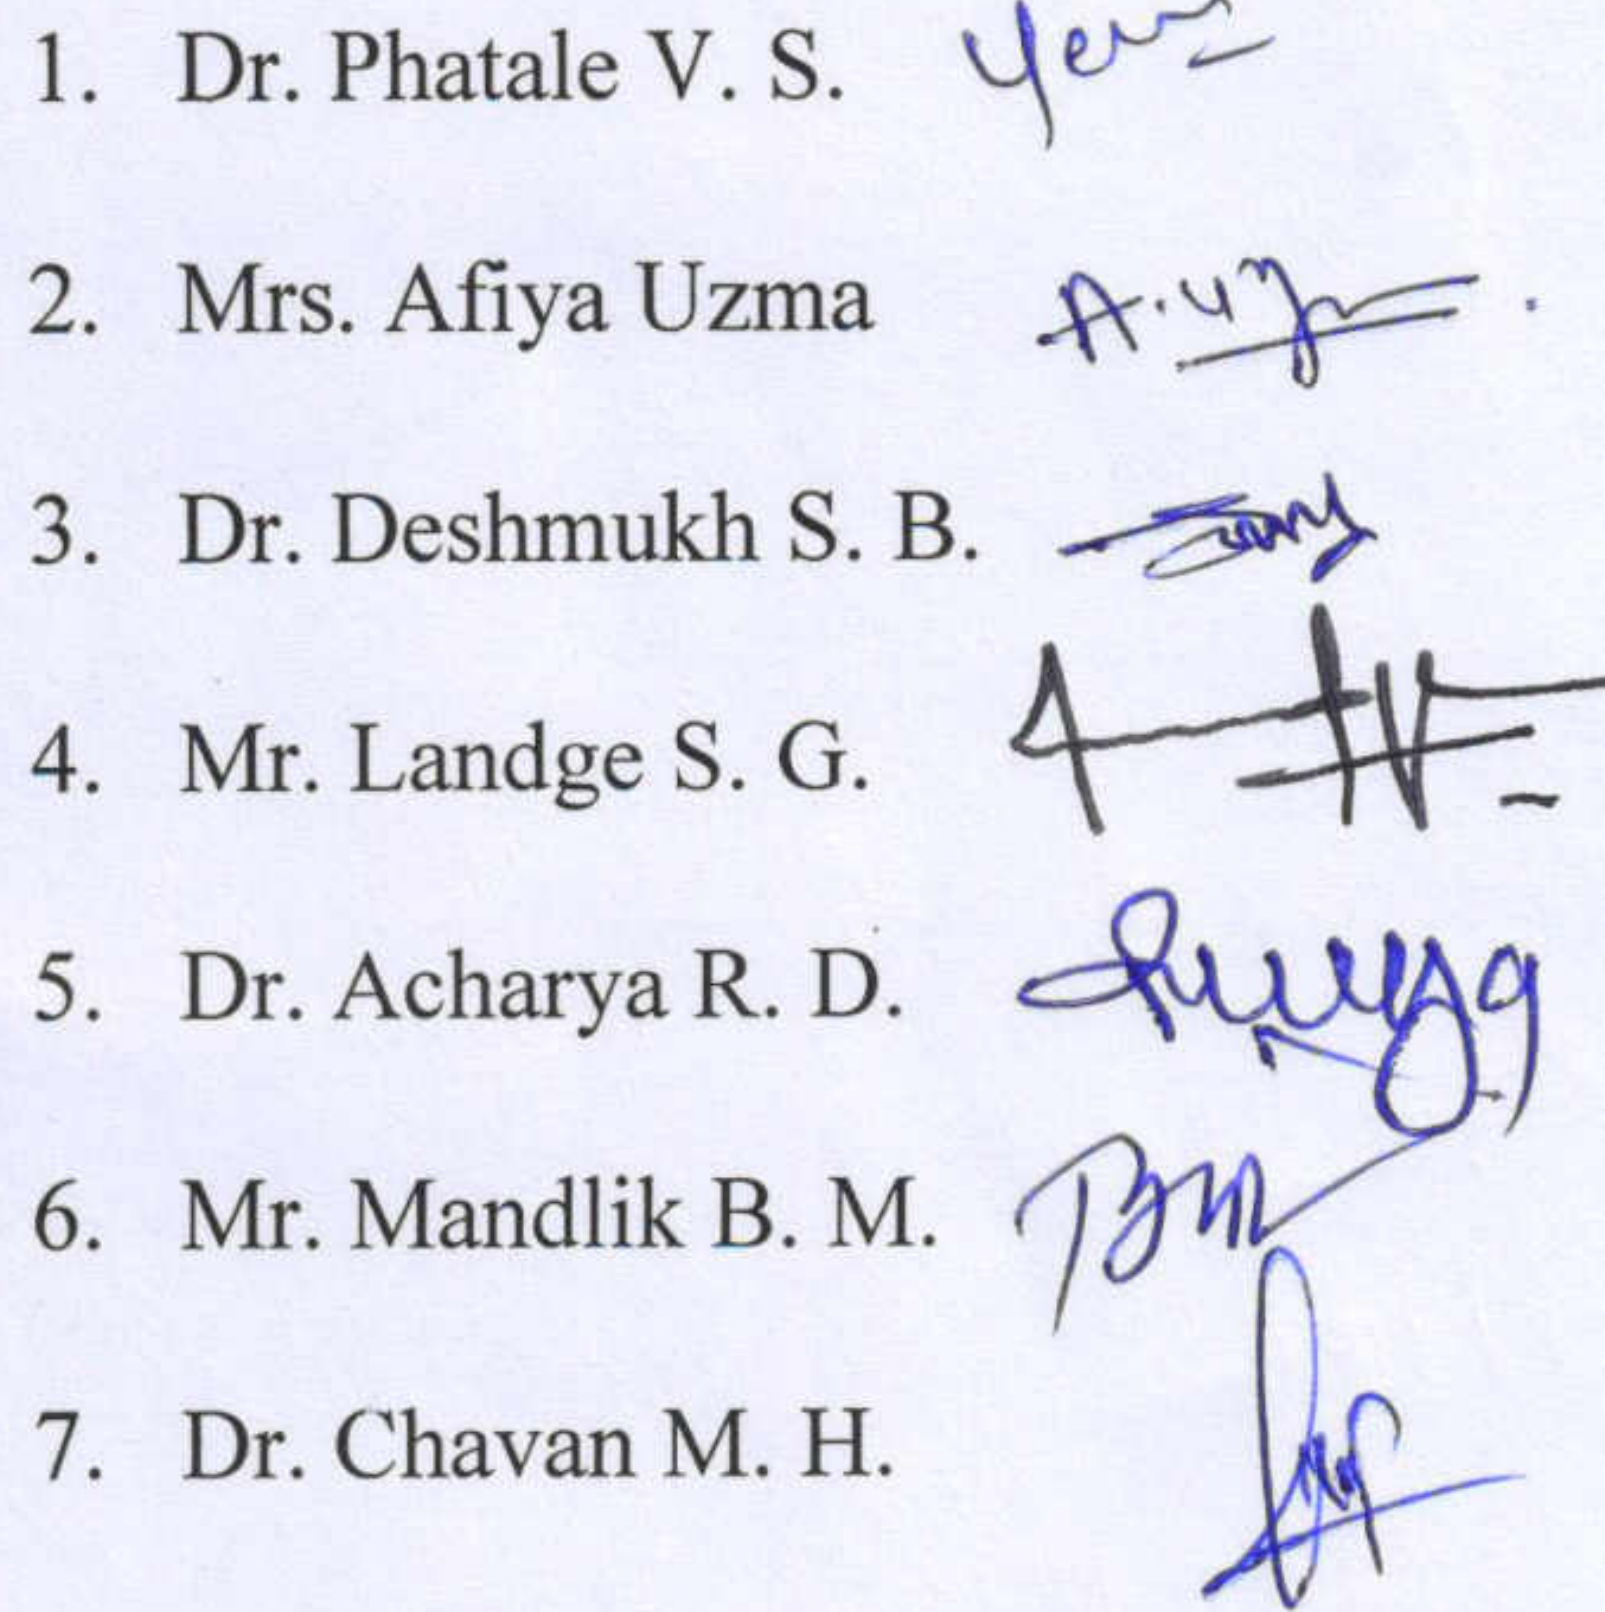 1. Dr. Phatale V. S.
2. Mrs. Afiya Uzma
3. Dr. Deshmukh S. B.
4. Mr. Landge S. G.
5. Dr. Acharya R. D.
6. Mr. Mandlik B. M.
7. Dr. Chavan M. H.